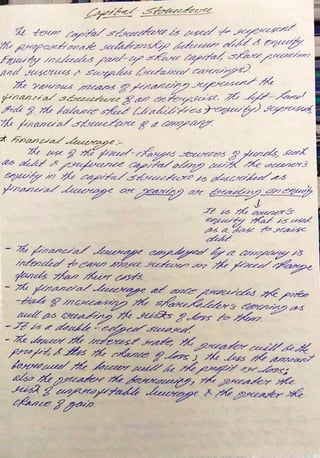 Capital Structure
The term capital structure is used to represent
the proportionate relationship between debt & equity
Equity includes paid-up share capital, share premium
and reserves & surplus (retained earnings)
The various means of financing represent the
financial structure of an enterprise. The left-hand
side of the balance sheet (liabilities + equity) represents
the financial structure of a company.
* Financial leverage:-
The use of the fixed-charges sources of funds, such
as debt & preference capital along with the owner's
equity in the capital structure is described as
financial leverage or gearing or trading on equity
↓
It is the owner's
equity that is used
as a base to raise
debt
- The financial leverage employed by a company is
intended to earn more return on the fixed charge
funds than their costs.
- The financial leverage at once provides the poten
-tials of increasing the shareholder's earning as
well as creating the risks of loss to them
- It is a double-edged sword.
- The lower the interest rate, the greater will be the
profit & less the chance of loss; the less the amount
borrowed the lower will be the profit or loss;
also the greater the borrowing, the greater the
risk of unprofitable leverage & the greater the
chance of gain